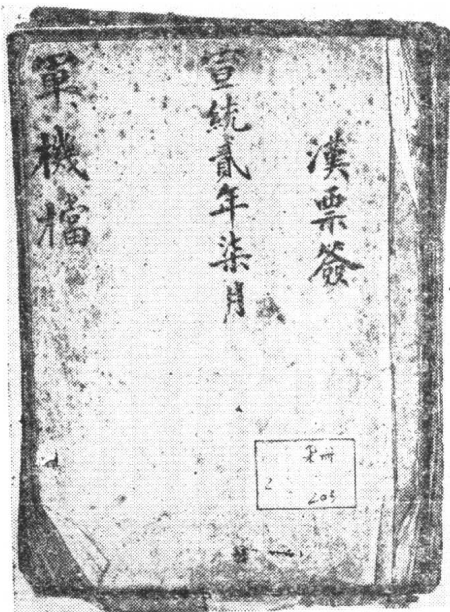 漢票簽
宣統貳年柒月
軍機檔
2
205